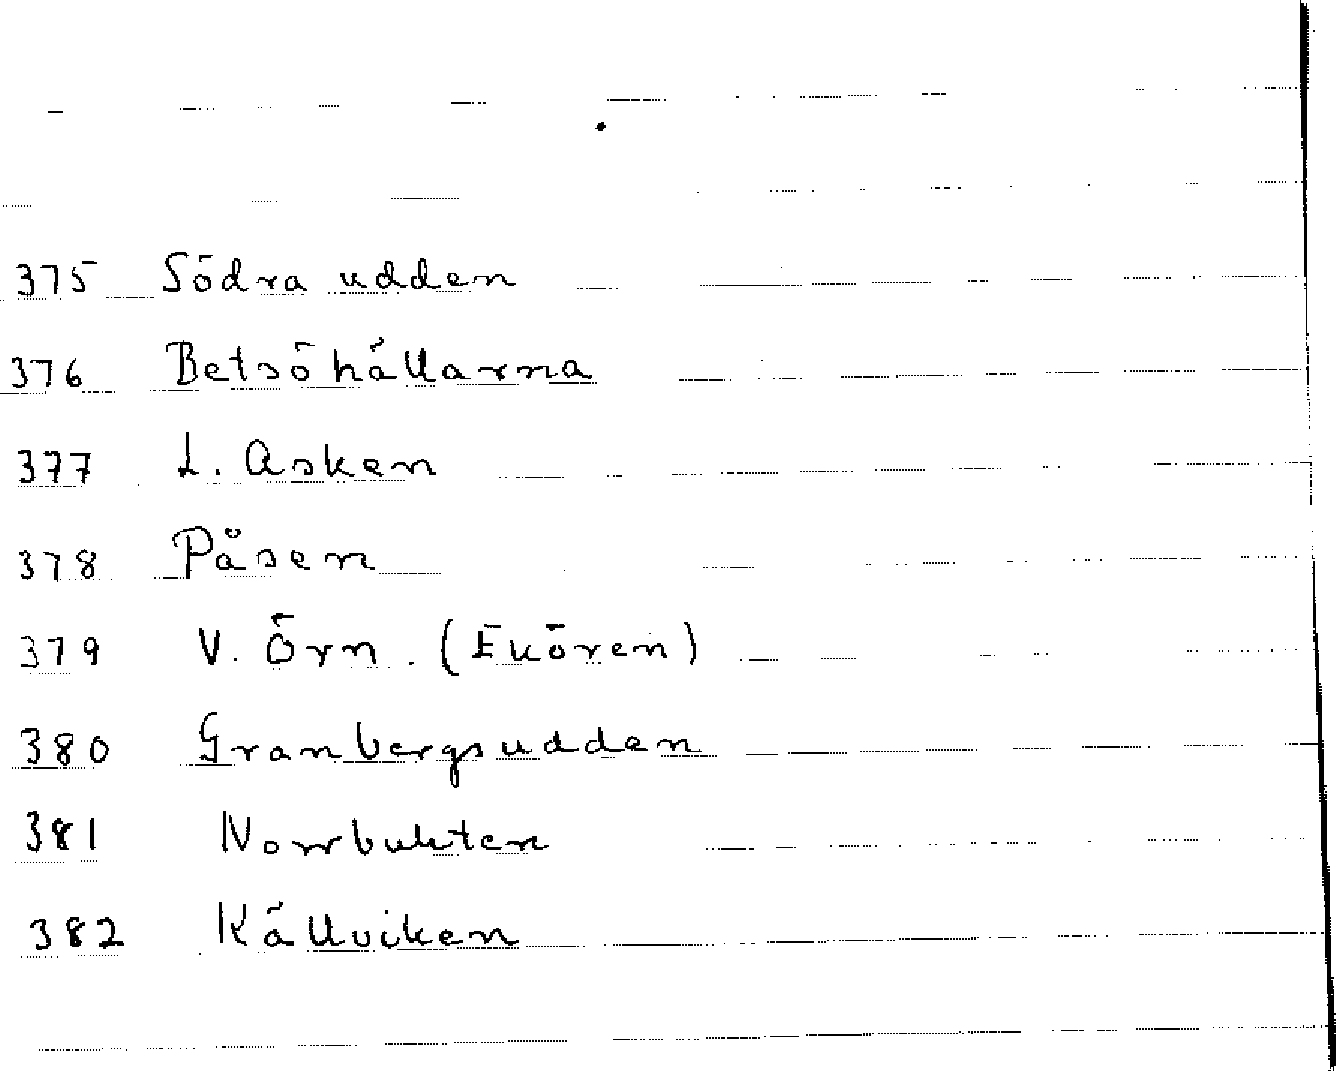 375 Södra udden
376 Betsöhällarna
377 L. Asken
378 Påsen
379 V. Örn. (Ekören)
380 Granbergsudden
381 Norrbukten
382 Källviken